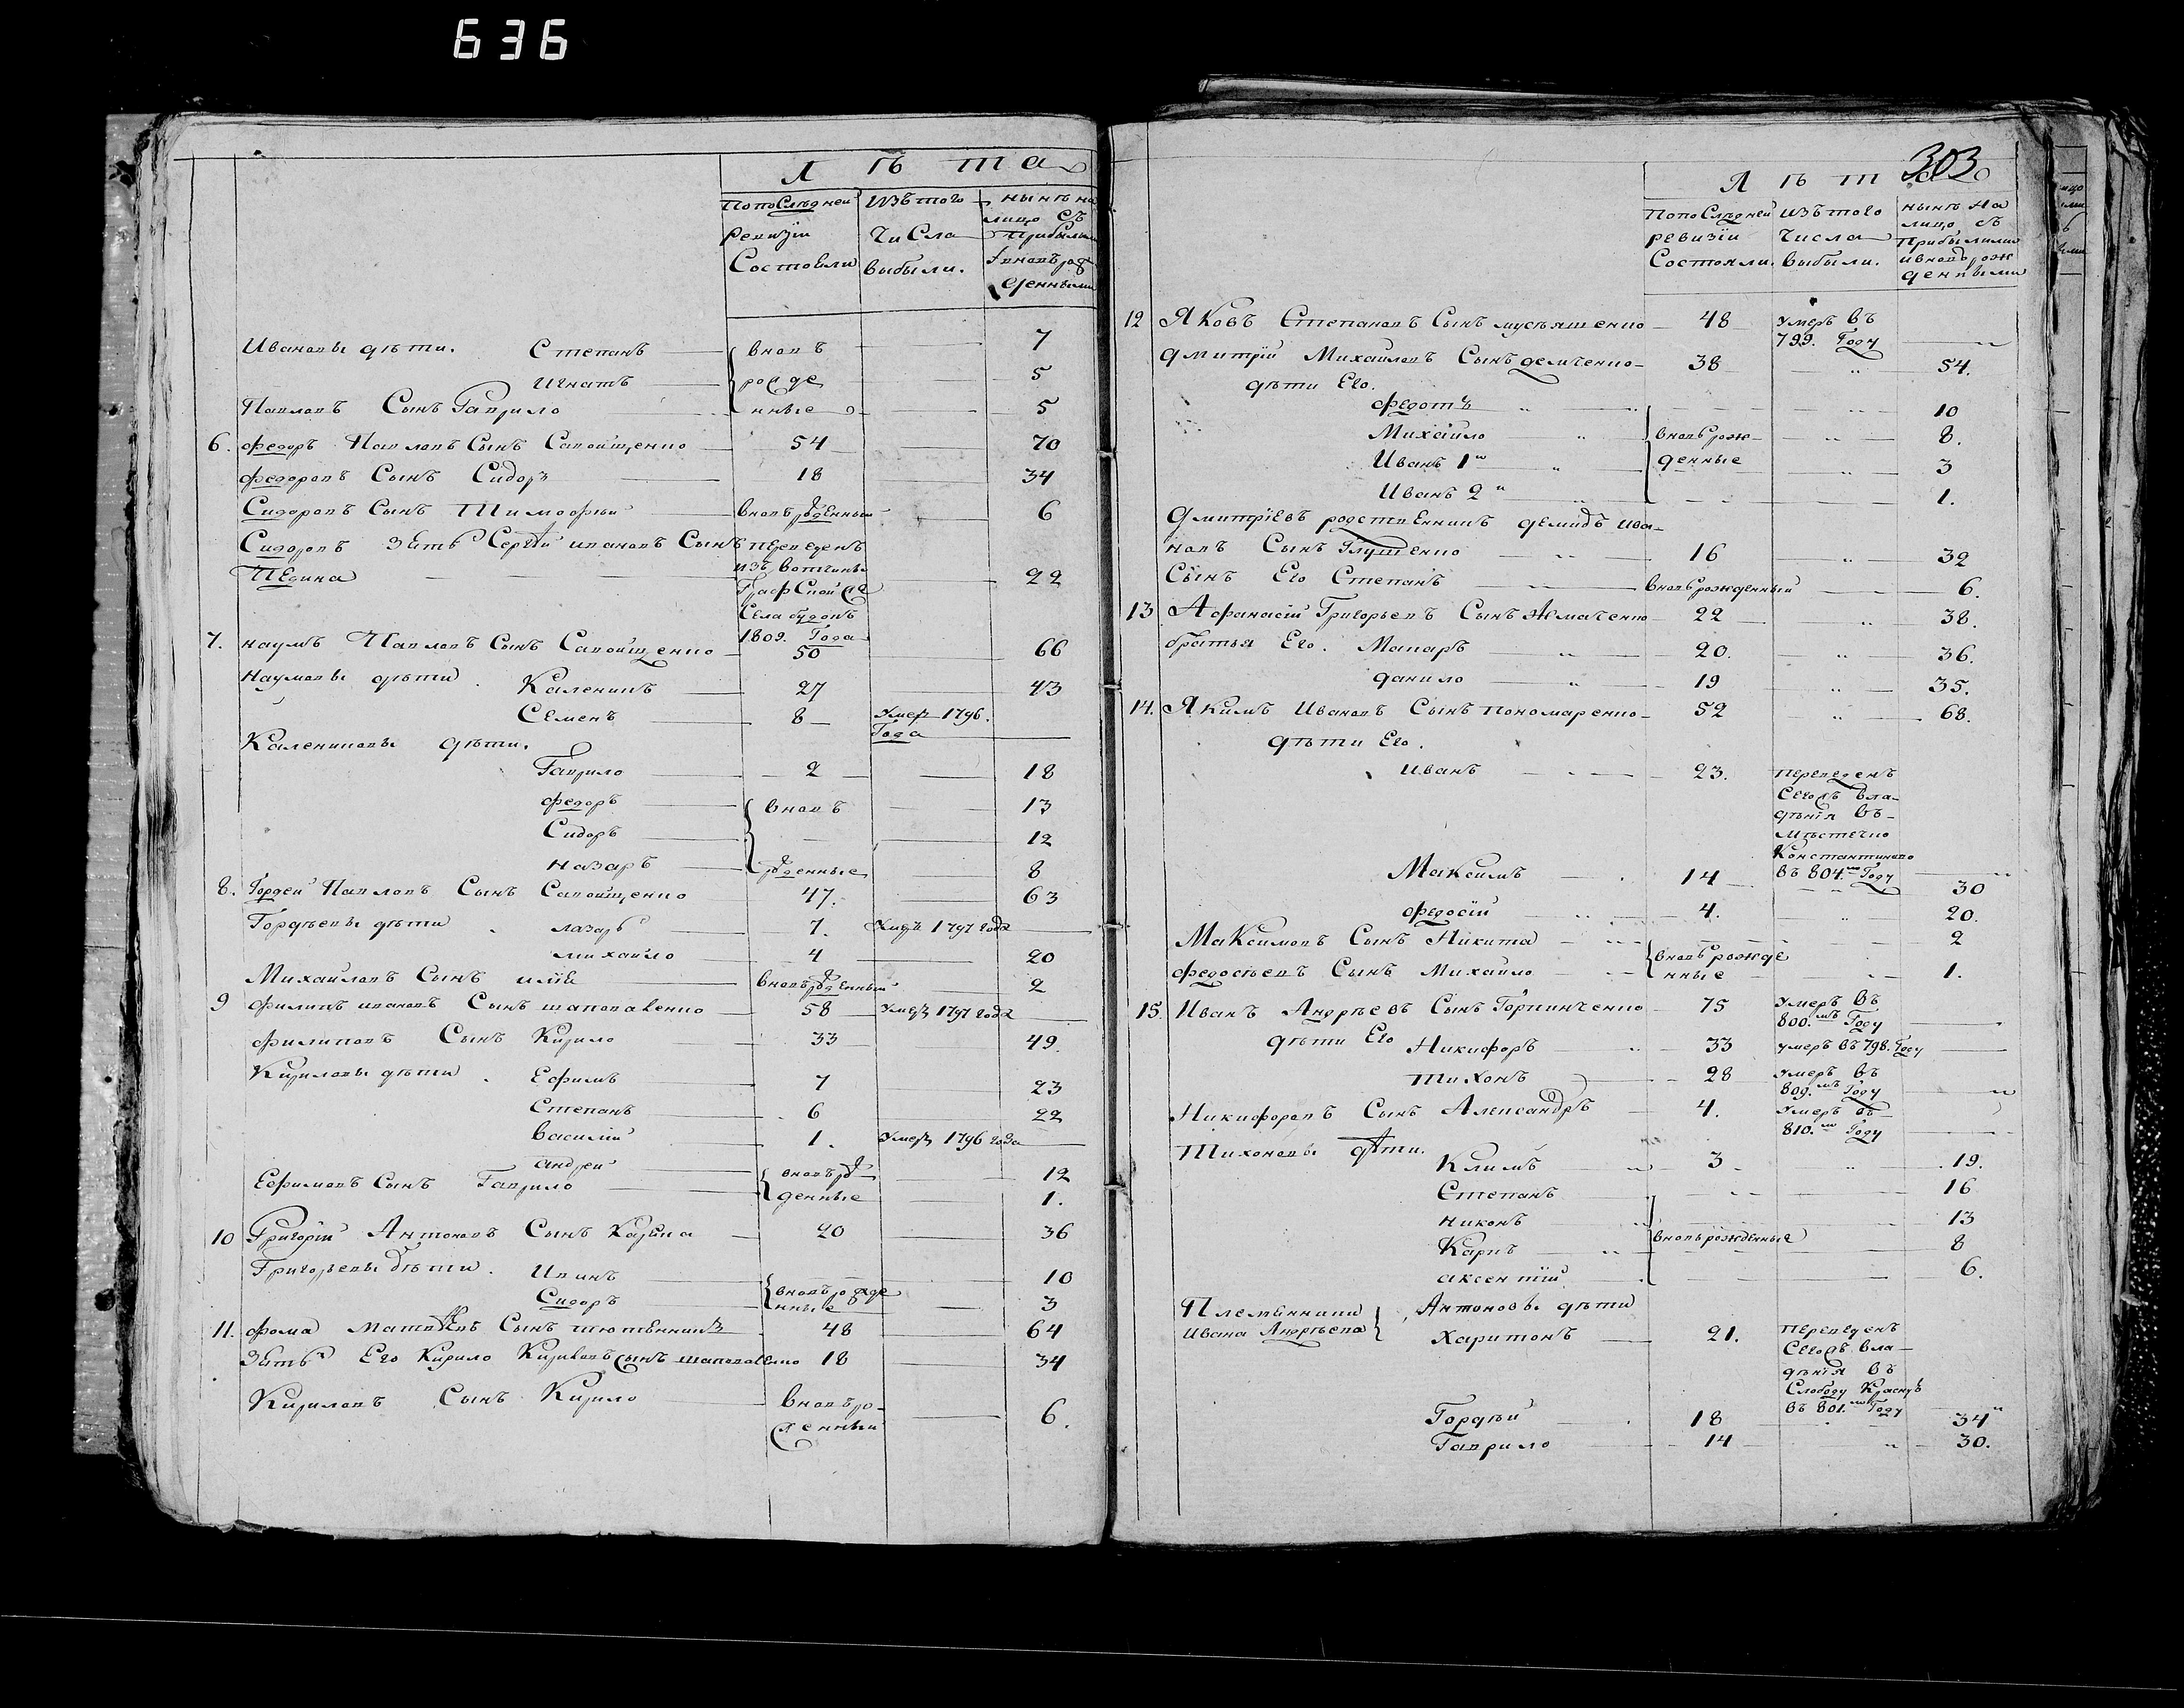 636
Лѣта
Попослѣдней ревизіи Состояли
Изъ того Числа выбыли.
нынѣ на лицо съ Прибылыми Ивновърож денными
Ивановы дѣти. Степанъ вновь 7
Игнатъ рожде 5
Павловъ Сынъ Гаврило нные 5
6. федоръ Павловъ Сынъ Савойщенко 54 70
федоровъ Сынъ Сидоръ 18 34
Сидоровъ Сынъ Тимофѣй вновърожденный 6
Сидоровъ Зять Сергѣй ивановъ Сынъ переведенъ
изъ вотчины 22
Села
1809. Года
7. наумъ Павловъ Сынъ Савойщенко 50 66
Наумовы дѣти. Каленикъ 27 43
Семенъ 8 Умеръ 1796. Года
Калениковы дѣти.
Гаврило 2 18
федоръ вновъ 13
Сидоръ 12
назаръ рожденные 8
8. Гордей Павловъ Сынъ Савойщенко 47. 63
Гордѣевы дѣти. лазарь 7. Умеръ 1797 года
михайло 4 20
Михайловъ Сынъ илія вновърожденный 2
9 филипъ ивановъ Сынъ шаповаленко 58 Умеръ 1797 года
филиповъ Сынъ Кирило 33 49.
Кириловы дѣти. Ефимъ 7 23
Степанъ 6 22
василій 1. Умеръ 1796 года
андрей вновърож 12
Ефимовъ Сынъ Гаврило денные 1.
10 Григорій Антоновъ Сынъ 20 36
Григорьевы дѣти. 10
Сидоръ вновърожде нные 3
11. фома Матвѣевъ Сынъ 48 64
Зять Его Кирило Кириловъ Сынъ шаповаленко 18 34
Кириловъ Сынъ Кирило вновъро жденный 6.
303
Лѣта
Попослѣдней ревизіи Состояли.
изъ того Числа выбыли.
нынѣ на лицо съ прибылыми ивновърож денными
12 Яковъ Степановъ Сынъ 48 Умеръ въ
799. Году
Дмитрій Михайловъ Сынъ демченко 38 54.
дѣти Его.
федотъ 10
Михайло вновърож 8.
Иванъ 1й денные 3
Иванъ 2й 1.
Дмитріевъ родственникъ демидъ ива
новъ Сынъ Глущенко 16 32
Сынъ Его Степанъ вновърожденный 6.
13 Афанасій Григорьевъ Сынъ 22 38.
братья Его. Макаръ 20. 36.
данило 19 35.
14. Якимъ Ивановъ Сынъ пономаренко 52 68.
дѣти Его.
иванъ 23. переведенъ
Сегожъ вла
дѣнія въ
мѣстечко
Константиново
въ 804.мъ Году
Максимъ 14 30
федосій 4. 20.
Максимовъ Сынъ Никита вновърожде 2
федосѣевъ Сынъ Михайло нные 1.
15. Иванъ Андрѣевъ Сынъ Горпинченко 75 Умеръ въ
800.мъ Году
дѣти Его Никифоръ 33 умеръ въ 798. Году
Тихонъ 28 Умеръ въ
809.мъ Году
Никифоровъ Сынъ Александръ 4. Умеръ въ
810.мъ Году
Тихоновы дѣти. Климъ 3 19.
Степанъ 16
никонъ 13
Карпъ вновърожденные 8
аксентій 6.
Племянники Антоновы дѣти
Ивана Андрѣева Харитонъ 21. переведенъ
Сегожъ вла
дѣнія въ
Слободу
въ 801.мъ Году
Гордѣй 18 34
Гаврило 14 30.